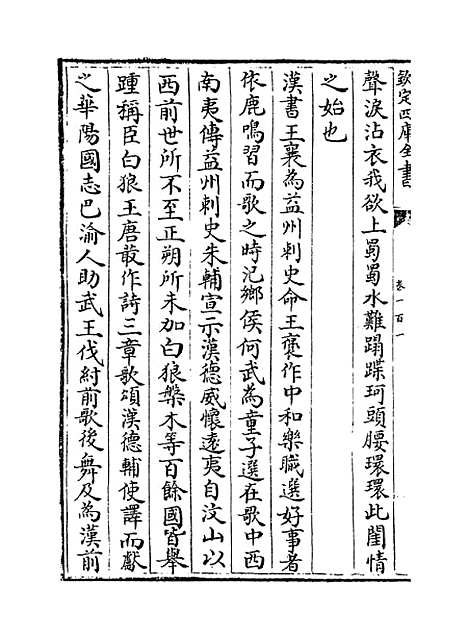 欽定四庫全書
卷一百一
聲淚沾衣我欲上蜀蜀水難蹋蹀珂頭腰環環此閨情
之始也
漢書王襄為益州刺史命王褒作中和樂職選好事者
依鹿鳴習而歌之時汜鄉侯何武為童子選在歌中西
南夷傳益州刺史朱輔宣示漢德威懷逺夷自汶山以
西前世所不至正朔所未加白狼槃木等百餘國皆舉
踵稱臣白狼王唐菆作詩三章歌頌漢德輔使譯而獻
之華陽國志巴渝人助武王伐紂前歌後舞及為漢前